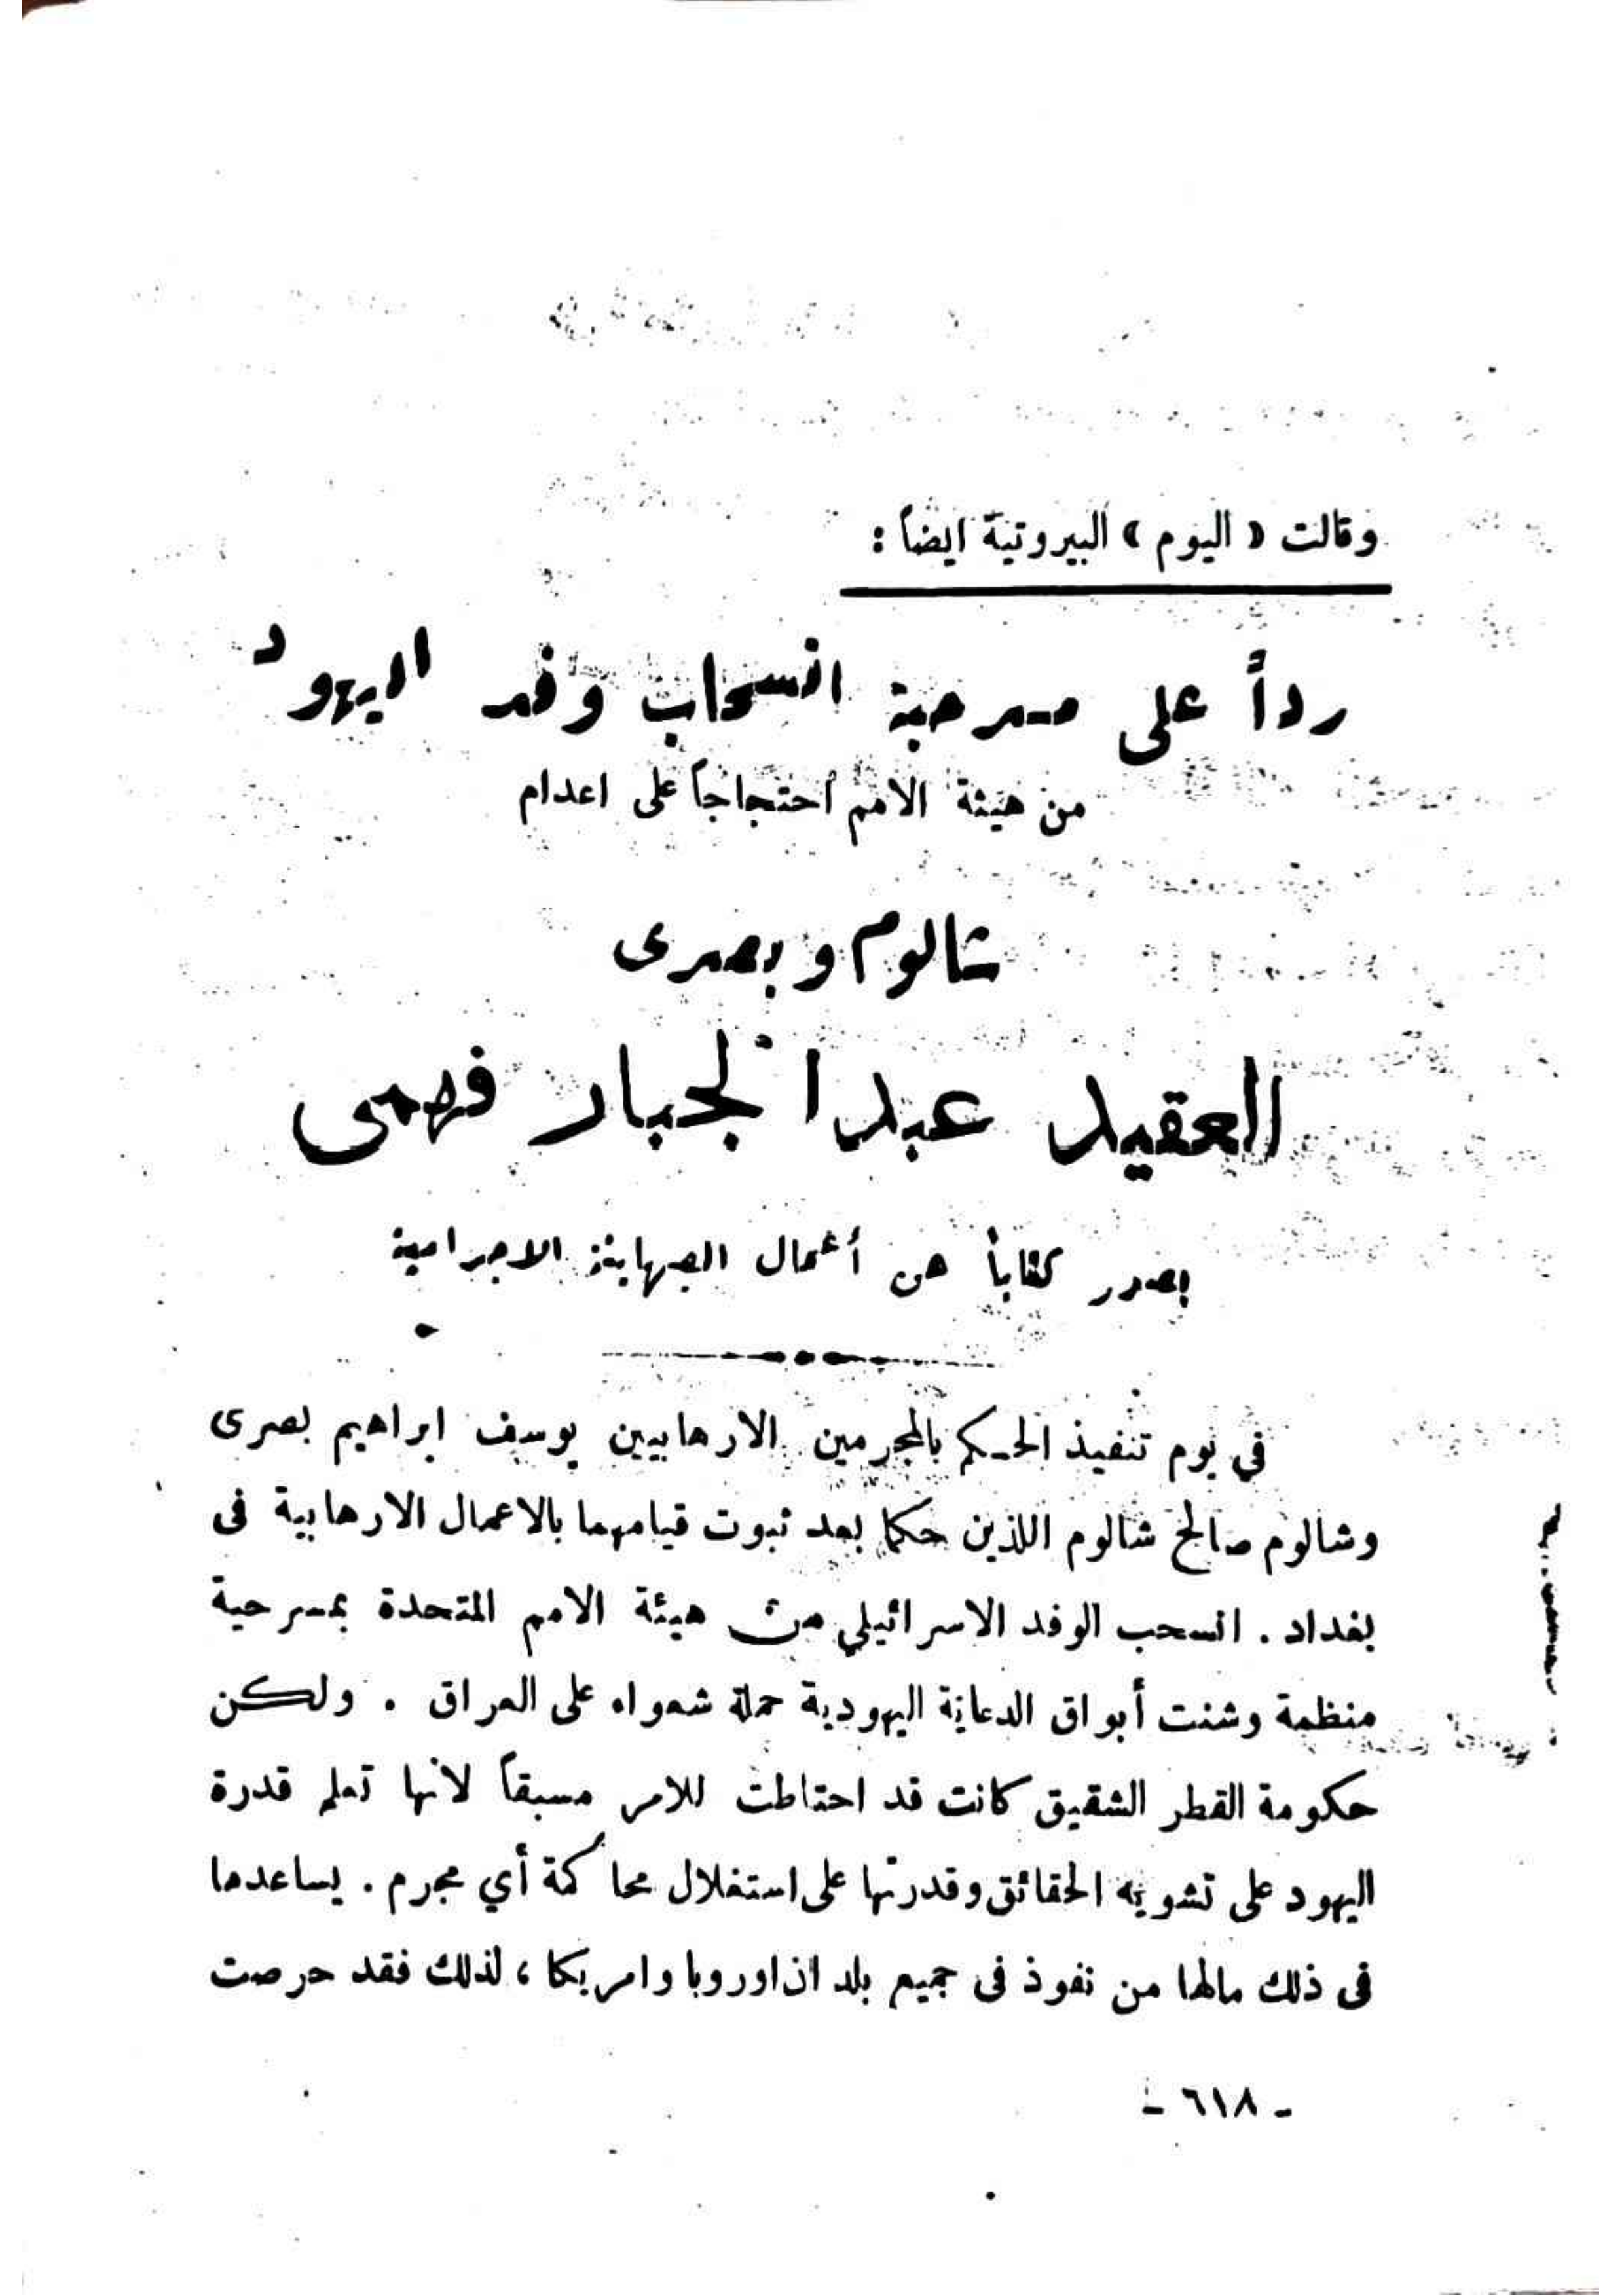 وقالت « اليوم » البيروتية ايضاً :
رداً على مسرحية انسحاب وفد اليهود
من هيئة الامم احتجاجاً على اعدام
شالوم وبصرى
العقيد عبدالجبار فهمى
يصدر كتاباً عن أعمال الصهاينة الاجرامية
في يوم تنفيذ الحكم بالمجرمين الارهابيين يوسف ابراهيم بصرى
وشالوم صالح شالوم اللذين حكما بعد ثبوت قيامهما بالاعمال الارهابية فى
بغداد . انسحب الوفد الاسرائيلي من هيئة الامم المتحدة بمسرحية
منظمة وشنت أبواق الدعاية اليهودية حملة شعواء على العراق . ولكن
حكومة القطر الشقيق كانت قد احتاطت للامر مسبقاً لانها تعلم قدرة
اليهود على تشويه الحقائق وقدرتها على استغلال محاكمة أي مجرم . يساعدها
فى ذلك مالها من نفوذ فى جميع بلدان اوروبا وامريكا ، لذلك فقد حرصت
ـ ٦١٨ ـ